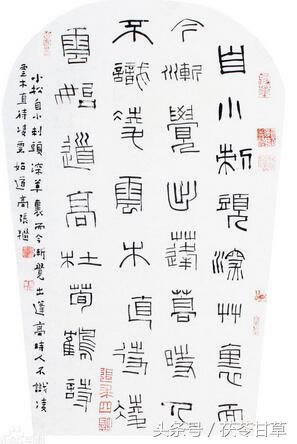 自小刺頭深艸裏而
今漸覺出蓬蒿時人
不識凌雲木直待凌
雲始道高杜荀鶴詩
小松自小刺頭深草裏而今漸覺出蓬蒿時人不識凌
雲木直待凌雲始道高
头条号/茯苓甘草